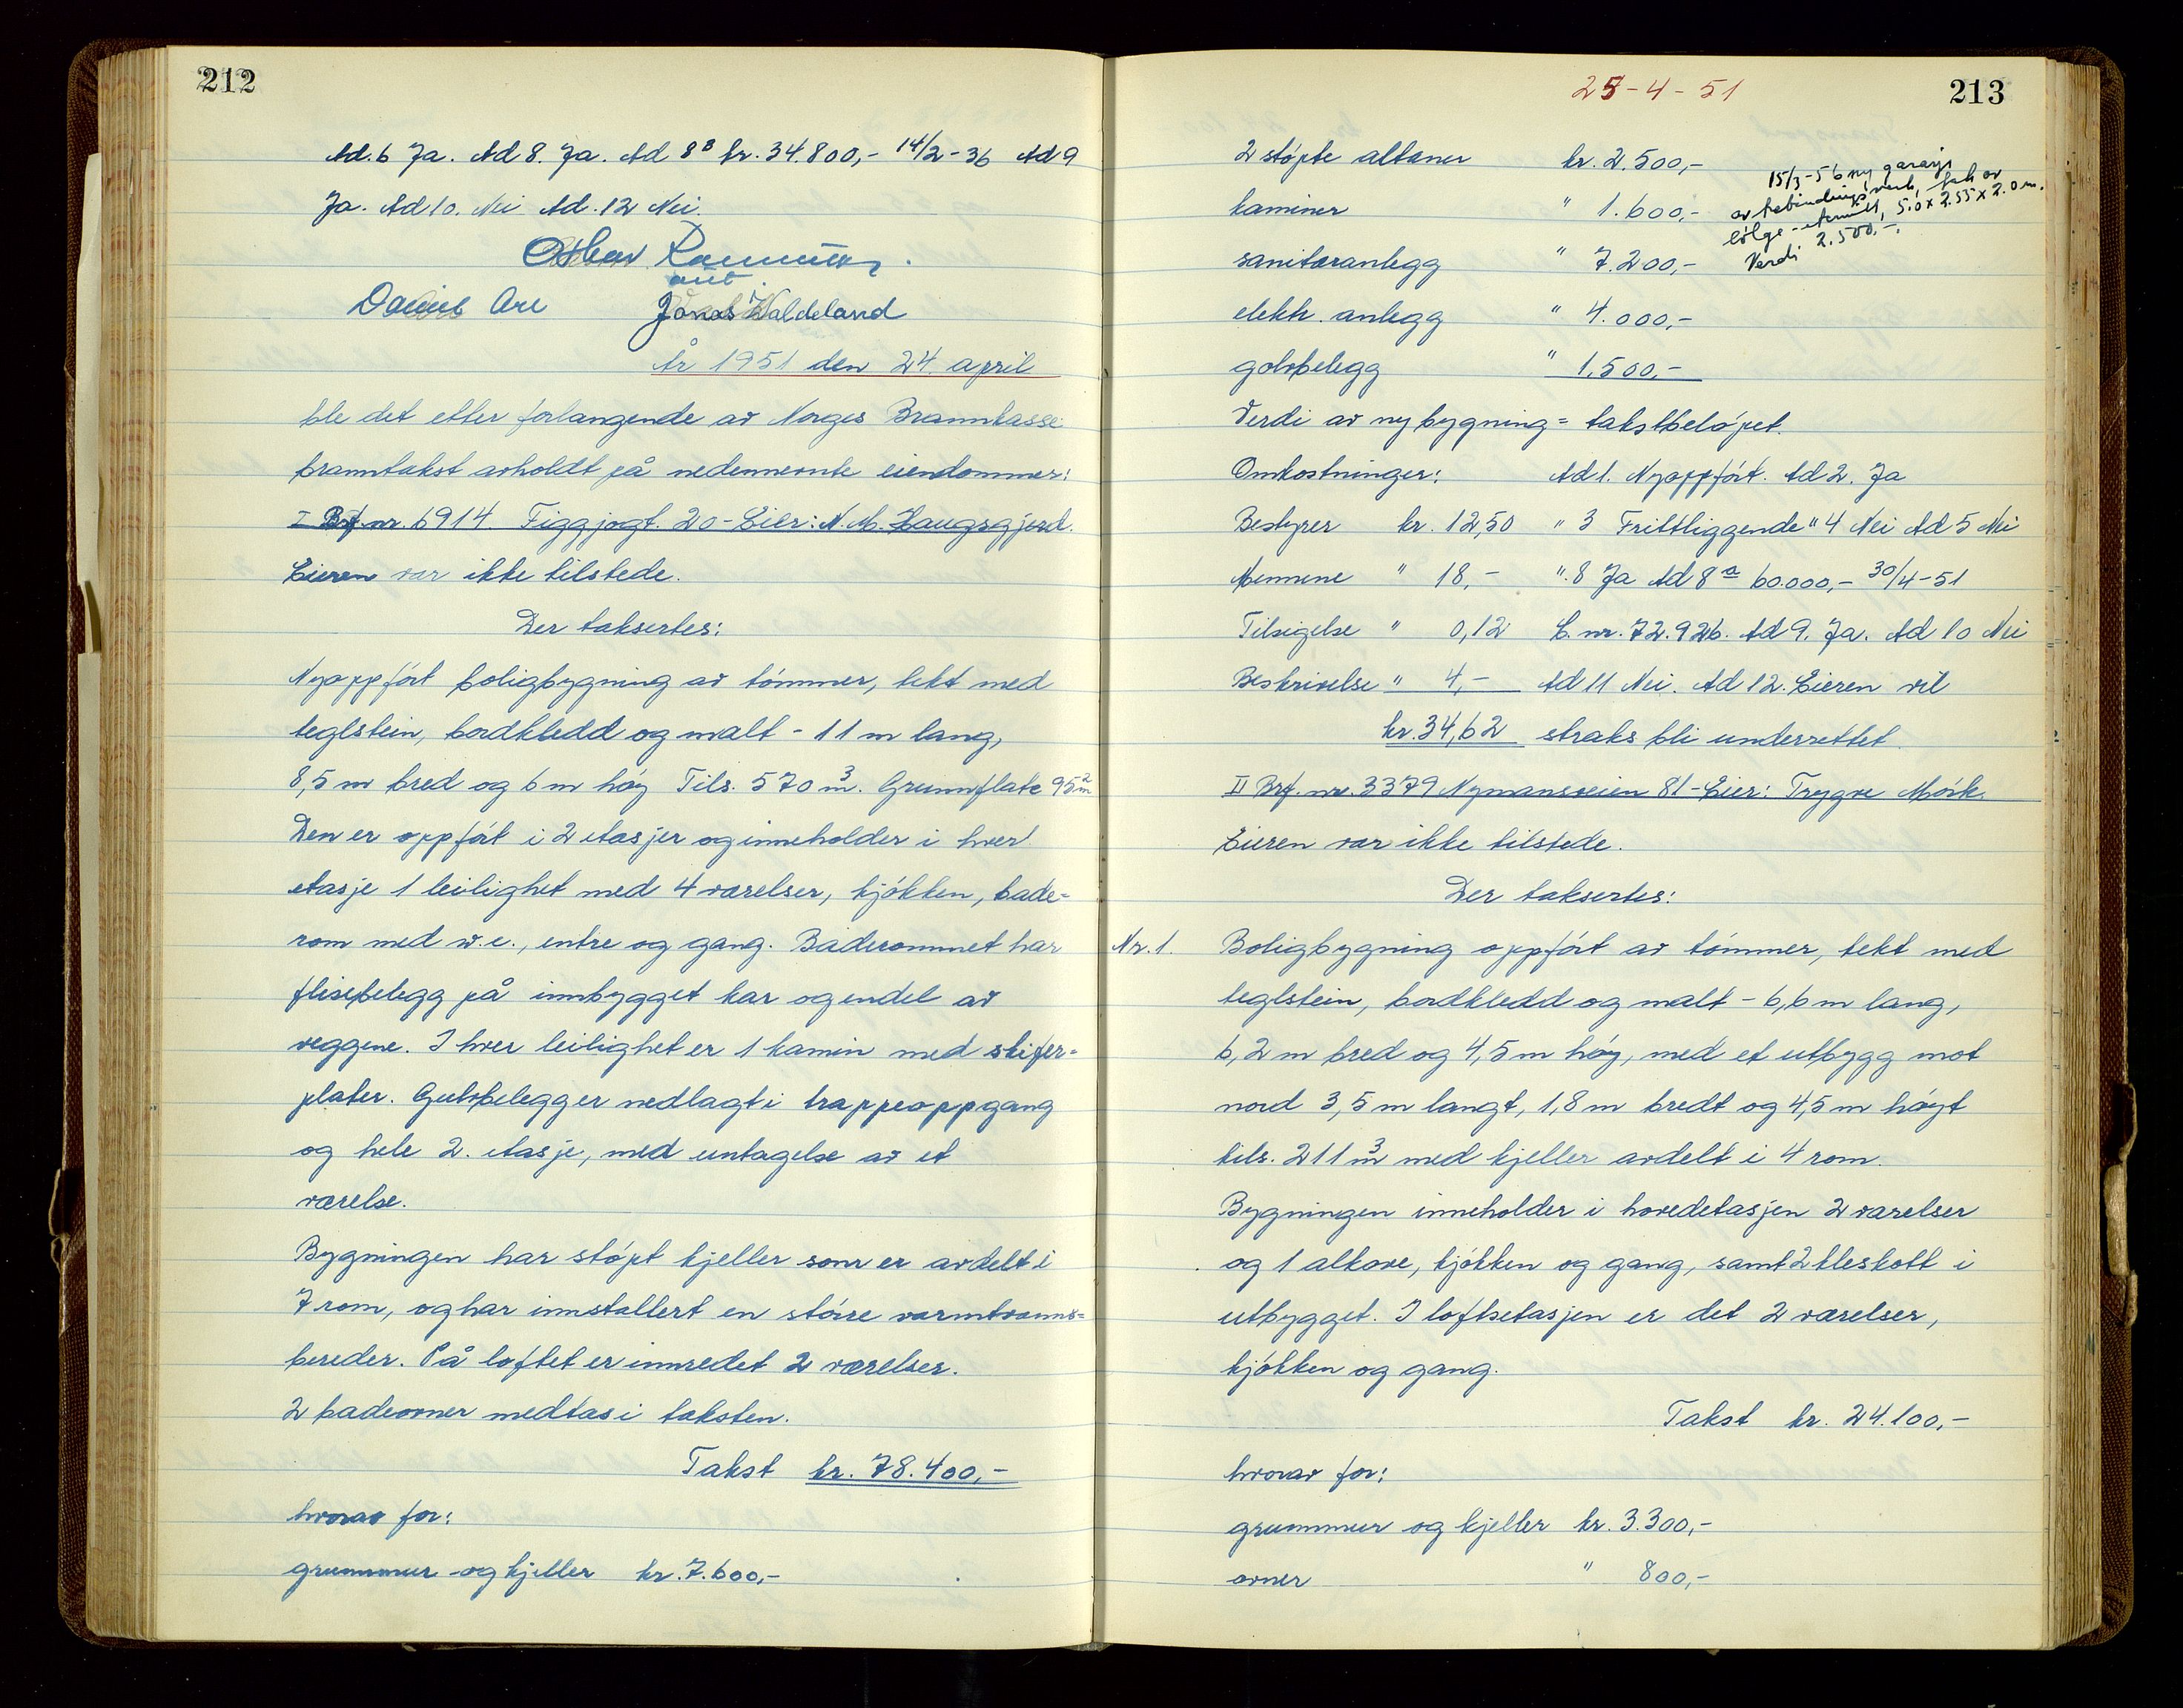 212
Ad. 6 Ja. Ad 8. Ja. Ad 8ᴮ kr. 34.800,- 14/2-36 Ad 9
Ja. Ad 10. Nei Ad. 12 Nei.
Jonas Waldeland
År 1951 den 24. april
ble det etter forlangende av Norges Brannkasse
branntakst avholdt på nedennevnte eiendommer:
I Brf. nr. 6914. Figgjogt. 20 - Eier: N. M. Haugsgjerd.
Eieren var ikke tilstede.
Der taksertes:
Nyoppført boligbygning av tømmer, tekt med
teglstein, bordkledd og malt - 11 m lang,
8,5 m bred og 6 m høy Tils. 570 m³. Grunnflate 95 m²
Den er oppført i 2 etasjer og inneholder i hver
etasje 1 leilighet med 4 værelser, kjøkken, bade=
rom med w.c., entre og gang. Baderommet har
flisebelegg på innbygget kar og endel av
veggene. I hver leilighet er 1 kamin med skifer=
plater. Gulvbelegg er nedlagt i trappeoppgang
og hele 2. etasje, med untagelse av et
værelse.
Bygningen har støpt kjeller som er avdelt i
7 rom, og har innstallert en større varmtvanns=
bereder. På loftet er innredet 2 værelser.
2 badeovner medtas i taksten.
Takst kr. 78.400,-
hvorav for:
grunnmur og kjeller kr. 7.600,-
25-4-51
213
2 støpte altaner kr. 2.500,-
kaminer " 1.600,-
sanitæranlegg " 7.200,-
elektr. anlegg " 4.000,-
golvbelegg " 1.500,-
15/3-56 ny garasje
av bebindingsverk, tak av
bølge-eternitt, 5.0 x 2.55 x 2.0 m.
Verdi 2.500,-.
Verdi av ny bygning = takstbeløpet.
Omkostninger: Ad 1. Nyoppført. Ad 2. Ja
Bestyrer kr. 12,50 " 3 Frittliggende " 4 Nei Ad 5 Nei
Mennene " 18,- ". 8 Ja Ad 8ª 60.000,- 30/4-51
Tilsigelse " 0,12 L. nr. 72.926. Ad 9. Ja. Ad 10 Nei
Beskrivelse " 4,- Ad 11 Nei. Ad 12. Eieren vil
kr. 34,62 straks bli underrettet.
II Brf. nr. 3379 Nymansveien 81 - Eier: Trygve Mørk.
Eieren var ikke tilstede.
Der taksertes:
Nr. 1. Boligbygning oppført av tømmer, tekt med
teglstein, bordkledd og malt - 6,6 m lang,
6,2 m bred og 4,5 m høy, med et utbygg mot
nord 3,5 m langt, 1,8 m bredt og 4,5 m høyt
tils. 211 m³ med kjeller avdelt i 4 rom.
Bygningen inneholder i hovedetasjen 2 værelser
og 1 alkove, kjøkken og gang, samt 2 kleskott i
utbygget. I loftsetasjen er det 2 værelser,
kjøkken og gang.
Takst kr. 24.100,-
hvorav for:
grunnmur og kjeller kr. 3.300,-
ovner " 800,-